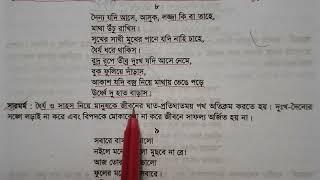 ৮
দৈন্য যদি আসে, আসুক, লজ্জা কি বা তাহে,
মাথা উঁচু রাখিস।
সুখের সাথী মুখের পানে যদি নাহি চাহে,
ধৈর্য ধরে থাকিস।
রুদ্র রূপে তীব্র দুঃখ যদি আসে নেমে,
বুক ফুলিয়ে দাঁড়াস,
আকাশ যদি বজ্র নিয়ে মাথায় ভেঙে পড়ে
ঊর্ধ্বে দু হাত বাড়াস।
সারমর্ম : ধৈর্য ও সাহস নিয়ে মানুষকে জীবনের ঘাত-প্রতিঘাতময় পথ অতিক্রম করতে হয়। দুঃখ-দৈন্যের
সঙ্গে লড়াই না করে এবং বিপদকে মোকাবেলা না করে জীবনে সাফল্য অর্জিত হয় না।
৯
সবারে বাস
ভালো
নইলে
লো মুছবে না রে।
আজ তোর
ভালো
ফুলের মতে